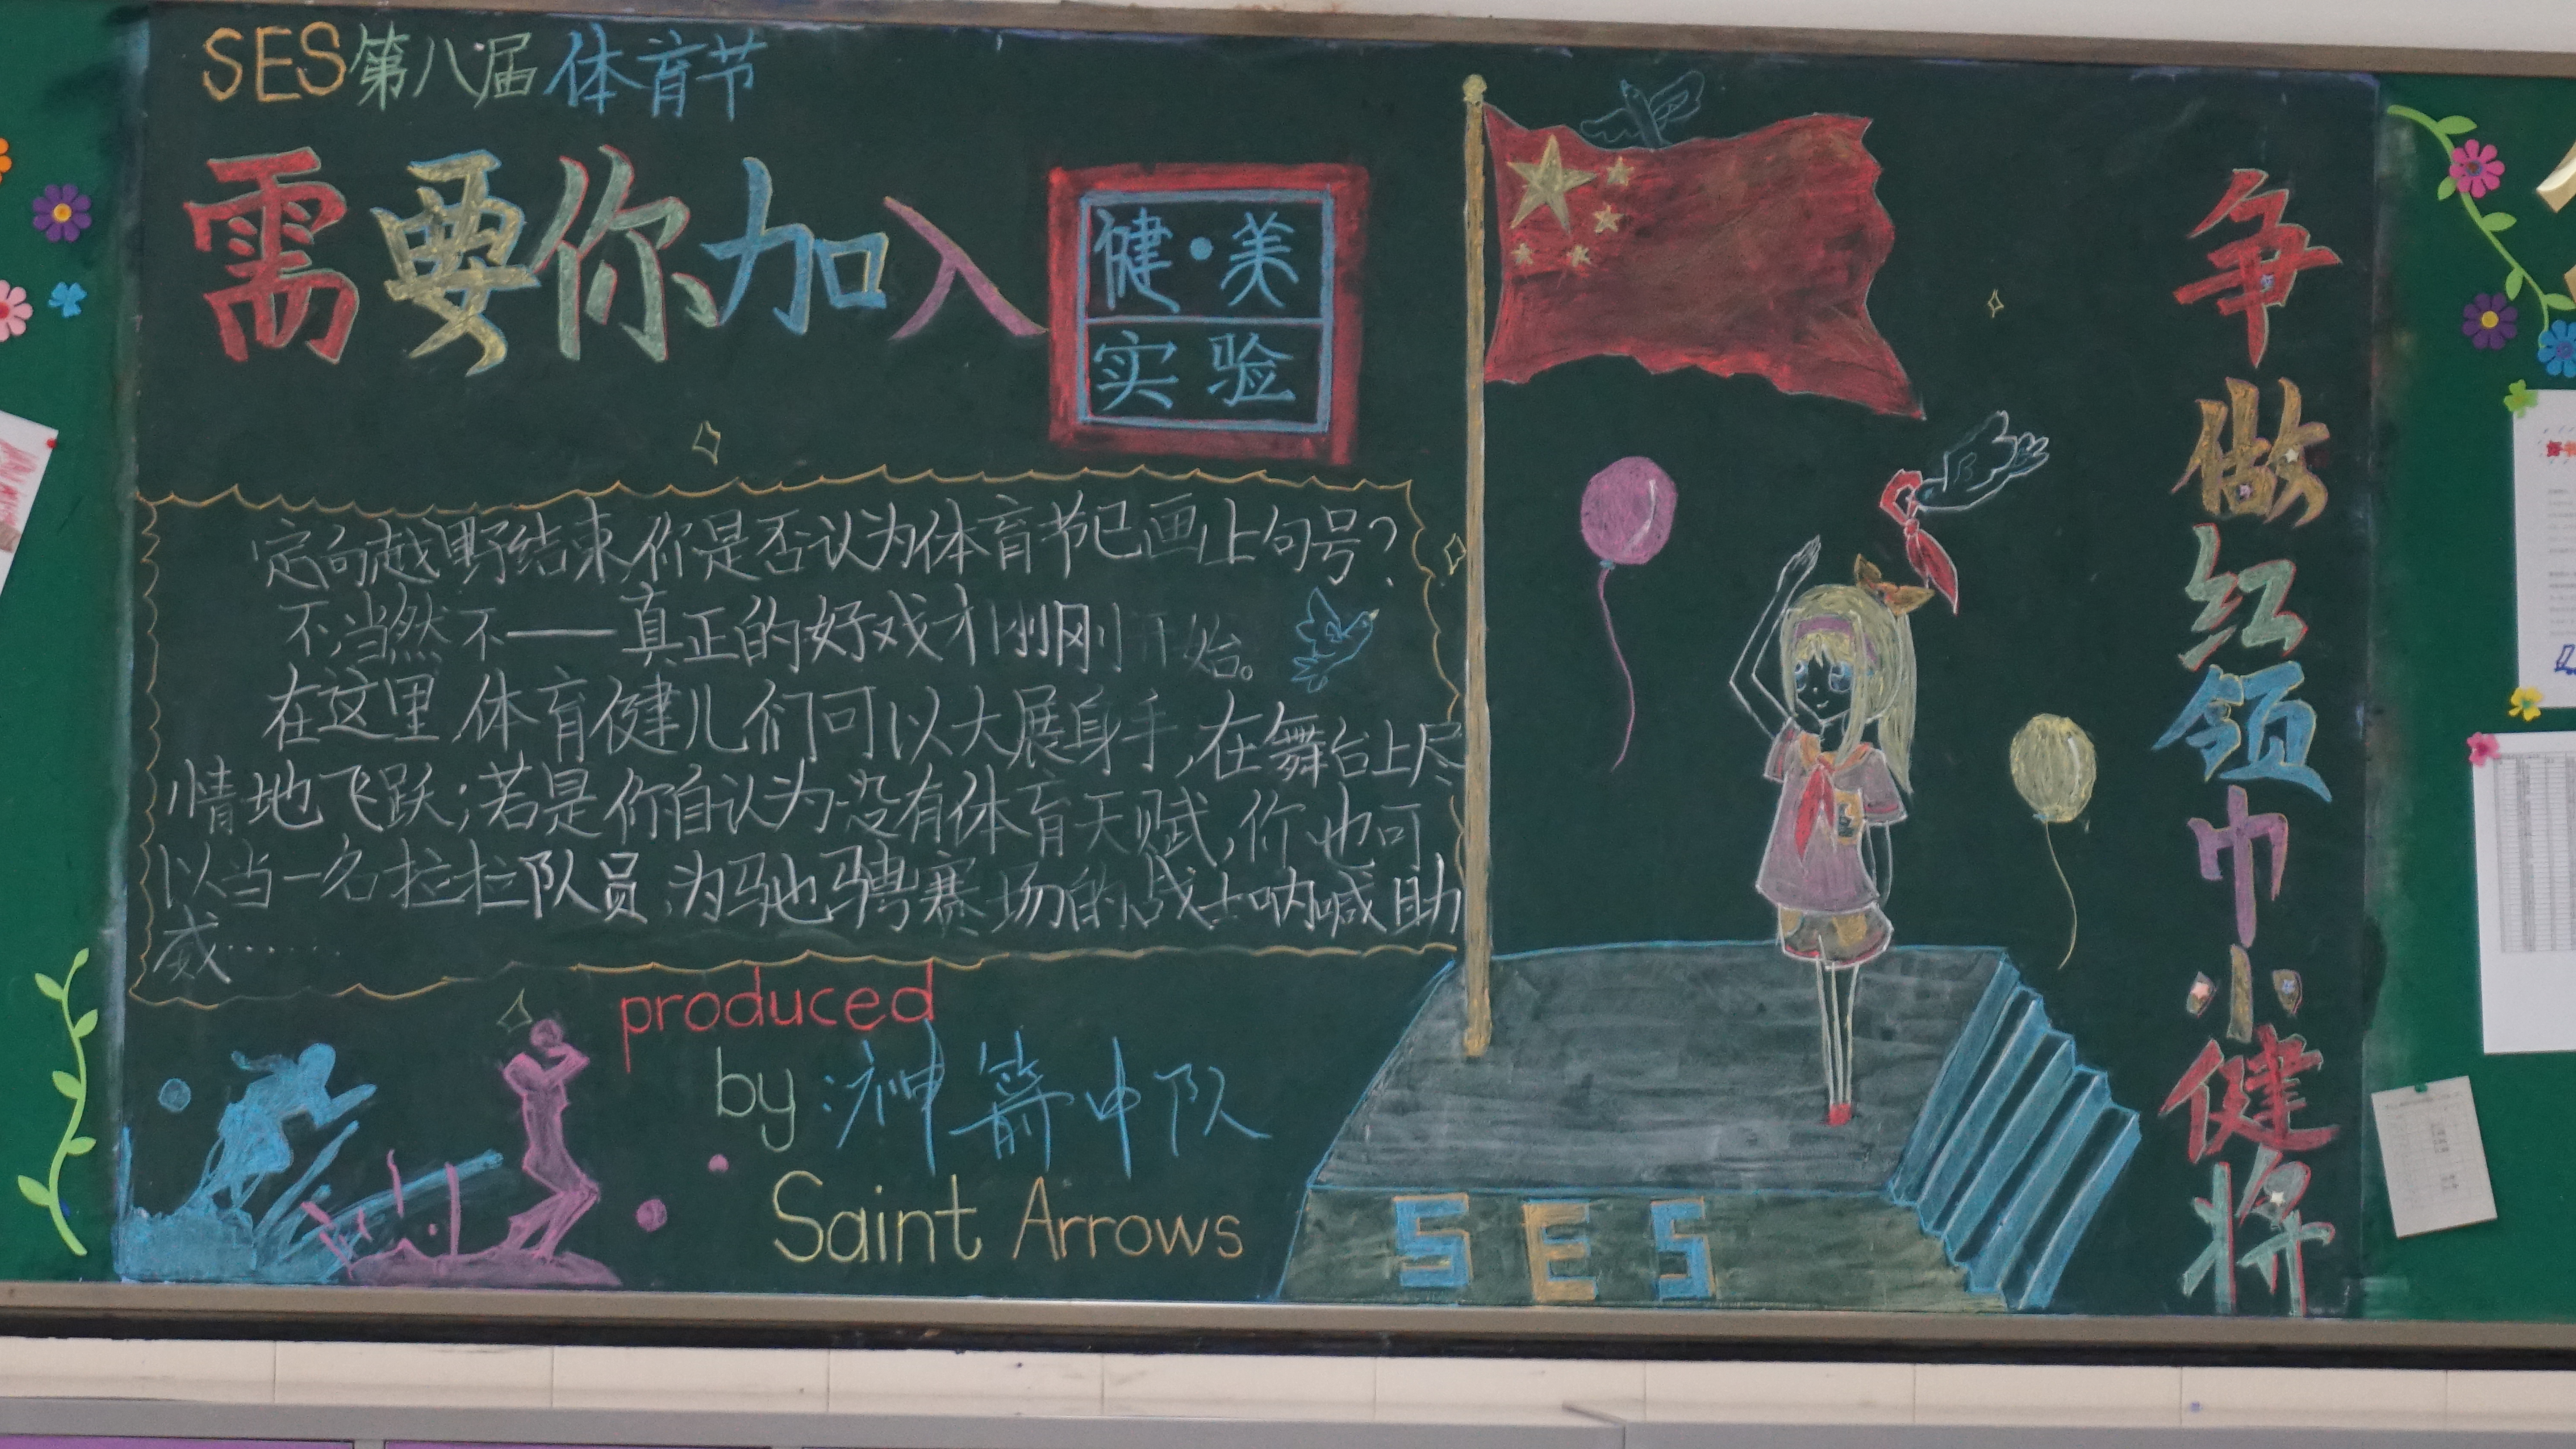 SES第八届体育节
需要你加入
健·美
实验
定向越野结束,你是否认为体育节已画上句号?
不,当然不——真正的好戏才刚刚开始。
在这里,体育健儿们可以大展身手,在舞台上尽
情地飞跃;若是你自认为没有体育天赋,你也可
以当一名拉拉队员,为驰骋赛场的战士呐喊助
威……
produced
by:神箭中队
Saint Arrows
SES
争做红领巾小健将